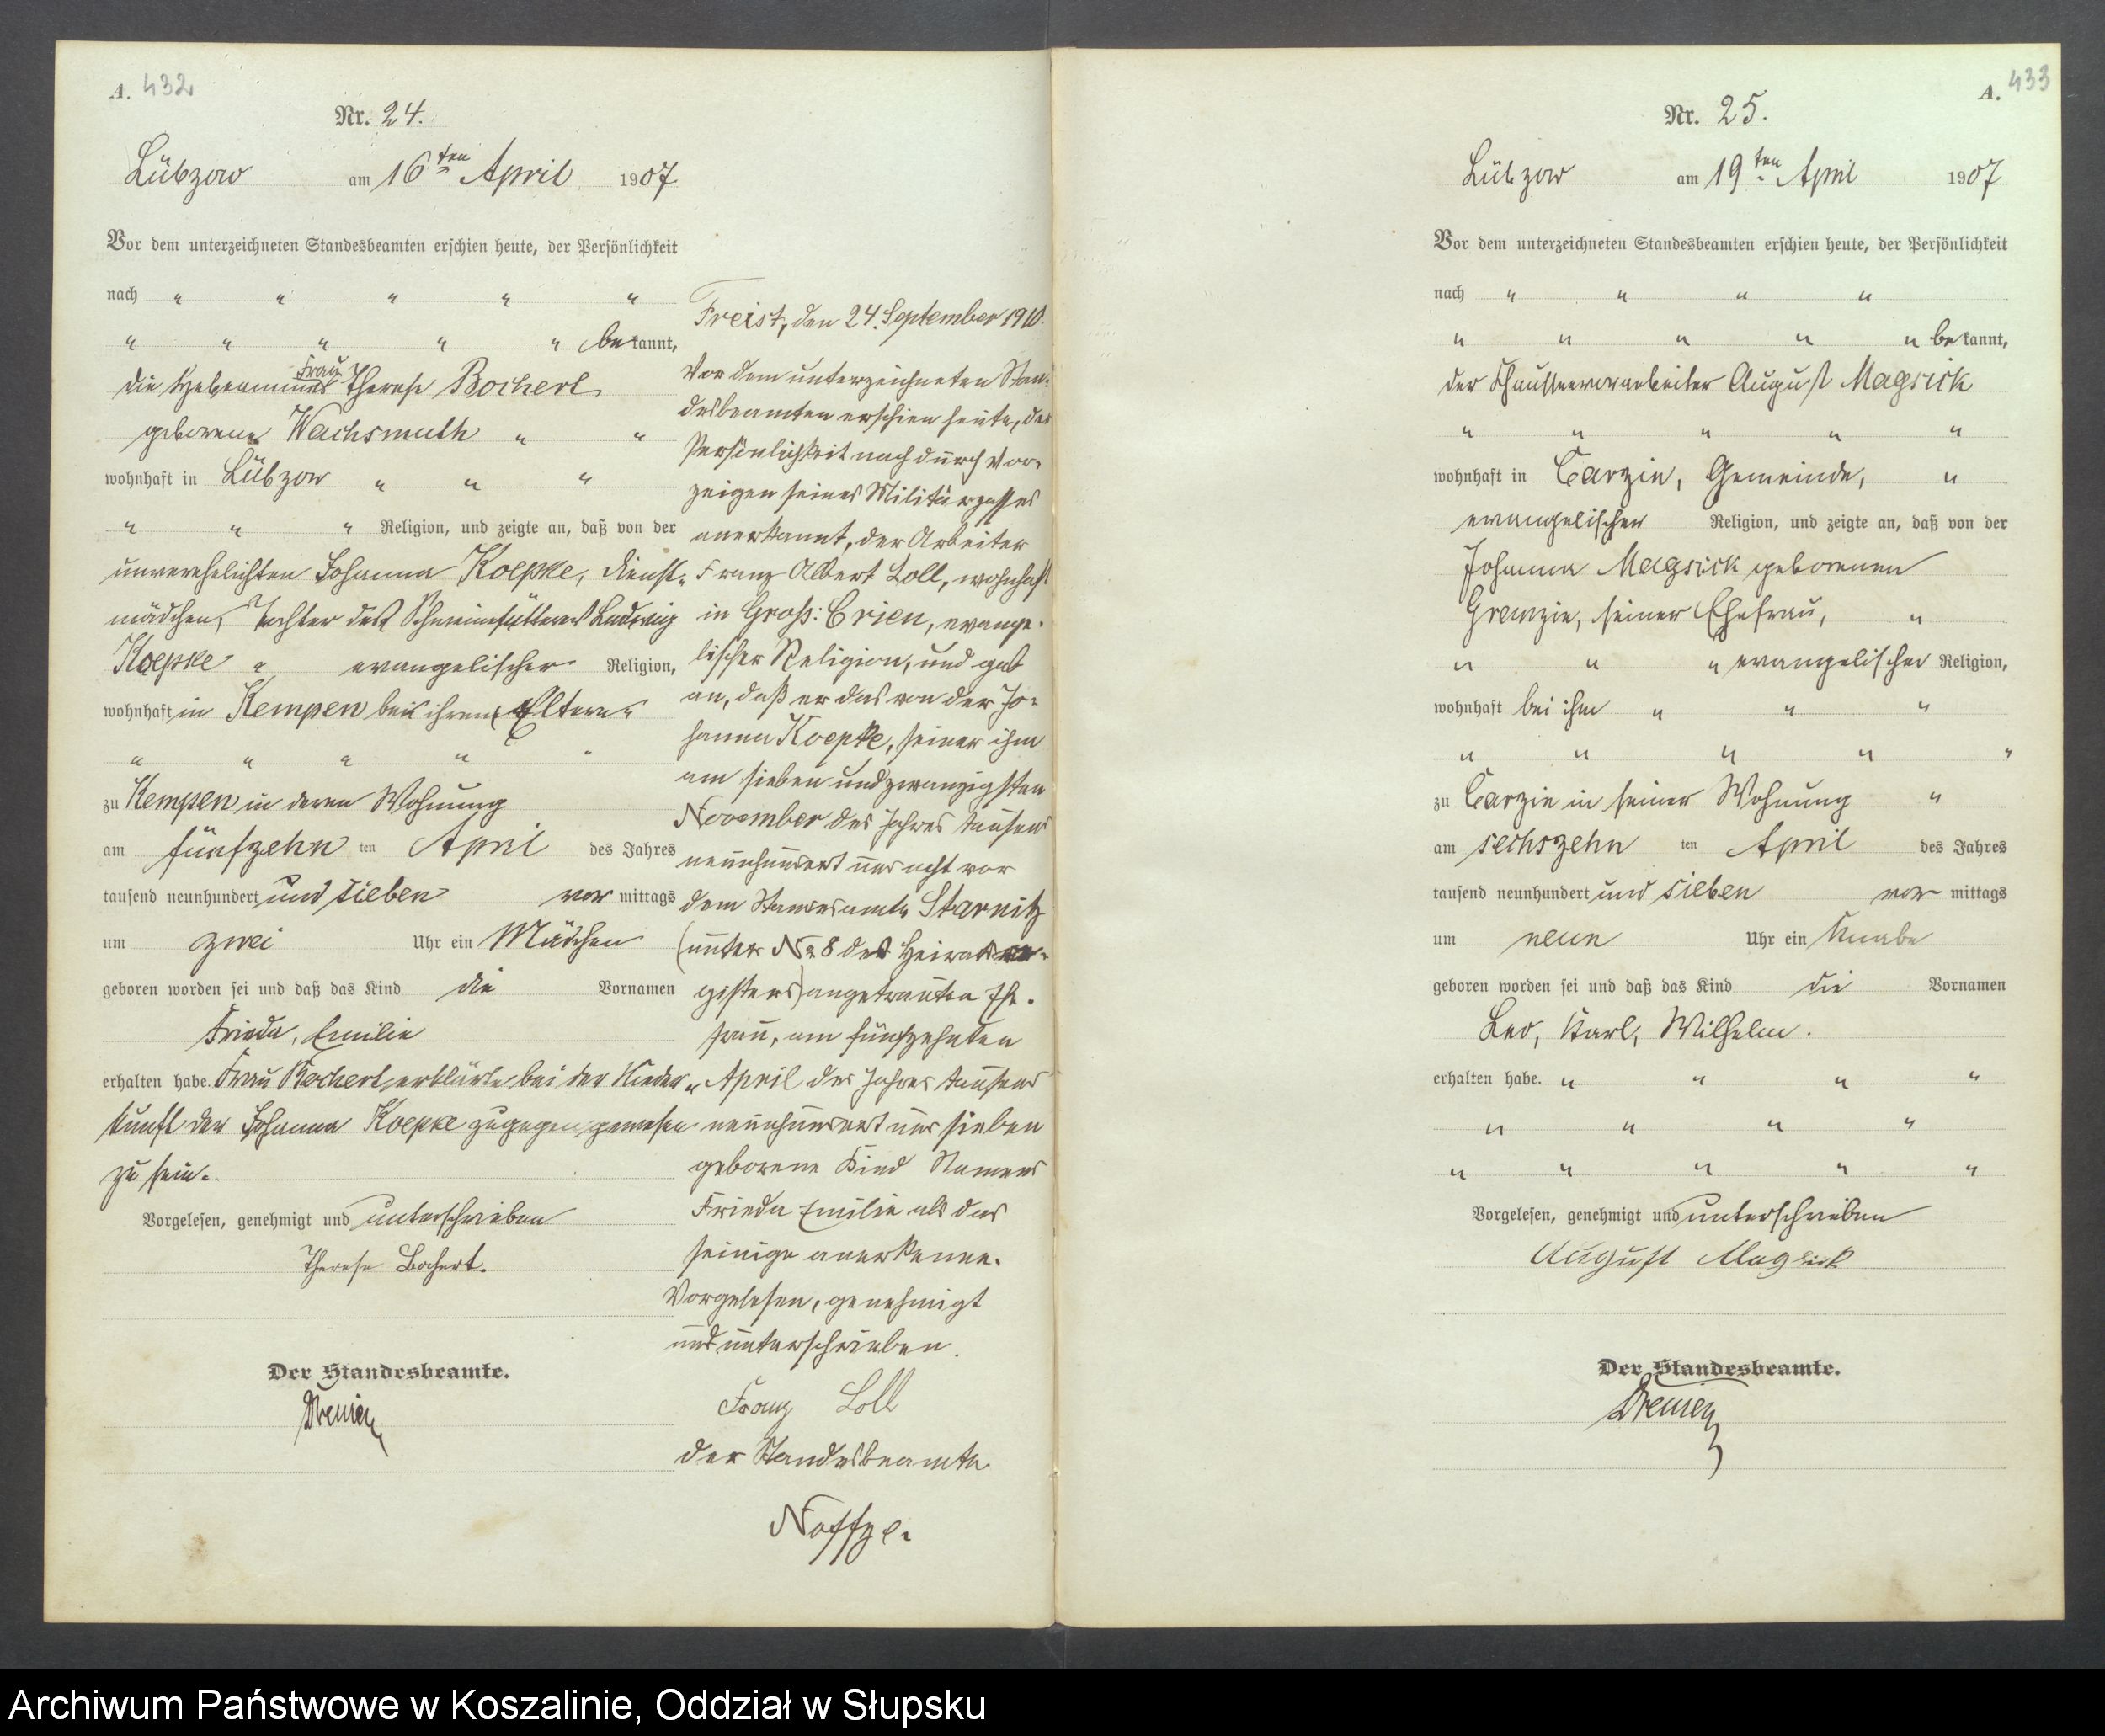 A. 432
Nr. 24.
Lübzow am 16ten April 1907
Vor dem unterzeichneten Standesbeamten erschien heute, der Persönlichkeit
nach " " " " "
" " " " " bekannt,
die Hebeamme Frau Therese Bochert
geborene Wachsmuth " "
wohnhaft in Lübzow " " "
" " " Religion, und zeigte an, daß von der
unverehelichten Johanna Koepke, Dienst-
mädchen, Tochter des Schweinefütterers Ludwig
Koepke " evangelischer Religion,
wohnhaft in Kempen bei ihren Eltern "
" " " " "
zu Kempen in deren Wohnung
am fünfzehn ten April des Jahres
tausend neunhundert und sieben vor mittags
um zwei Uhr ein Mädchen
geboren worden sei und daß das Kind die Vornamen
Frieda, Emilie
erhalten habe. Frau Bochert erklärte bei der Nieder-
kunft der Johanna Koepke zugegen gewesen
zu sein.
Vorgelesen, genehmigt und unterschrieben
Therese Bochert.
Der Standesbeamte.
Freist, den 24. September 1910.
Vor dem unterzeichneten Stan-
desbeamten erschien heute, der
Persönlichkeit nach durch Vor-
zeigen seines Militärpasses
anerkannt, der Arbeiter
Franz Albert Loll, wohnhaft
in Groß: Crien, evange-
lischer Religion, und gab
an, daß er das von der Jo-
hanna Koepke, seiner ihm
am sieben und zwanzigsten
November des Jahres tausend
neunhundert und acht vor
dem Standesamte Starnitz
(unter No 8 des Heiratsre-
gisters) angetrauten Ehe-
frau, am fünfzehnten
April des Jahres tausend
neunhundert und sieben
geborene Kind Namens
Frieda Emilie als das
seinige anerkenne.
Vorgelesen, genehmigt
und unterschrieben.
Franz Loll
Der Standesbeamte
Noffze.
A. 433
Nr. 25.
Lübzow am 19ten April 1907
Vor dem unterzeichneten Standesbeamten erschien heute, der Persönlichkeit
nach " " " "
" " " " " bekannt,
der Chausseevorarbeiter August Magsick
" " " " "
wohnhaft in Carzin, Gemeinde, "
evangelischer Religion, und zeigte an, daß von der
Johanna Magsick geborenen
Granzin, seiner Ehefrau, "
" " " evangelischer Religion,
wohnhaft bei ihm " " "
" " " " "
zu Carzin in seiner Wohnung "
am sechszehn ten April des Jahres
tausend neunhundert und sieben vor mittags
um neun Uhr ein Knabe
geboren worden sei und daß das Kind die Vornamen
Leo, Karl, Wilhelm.
erhalten habe. " " " "
" " " "
" " " " "
Vorgelesen, genehmigt und unterschrieben
August Magsick
Der Standesbeamte.
Archiwum Państwowe w Koszalinie, Oddział w Słupsku